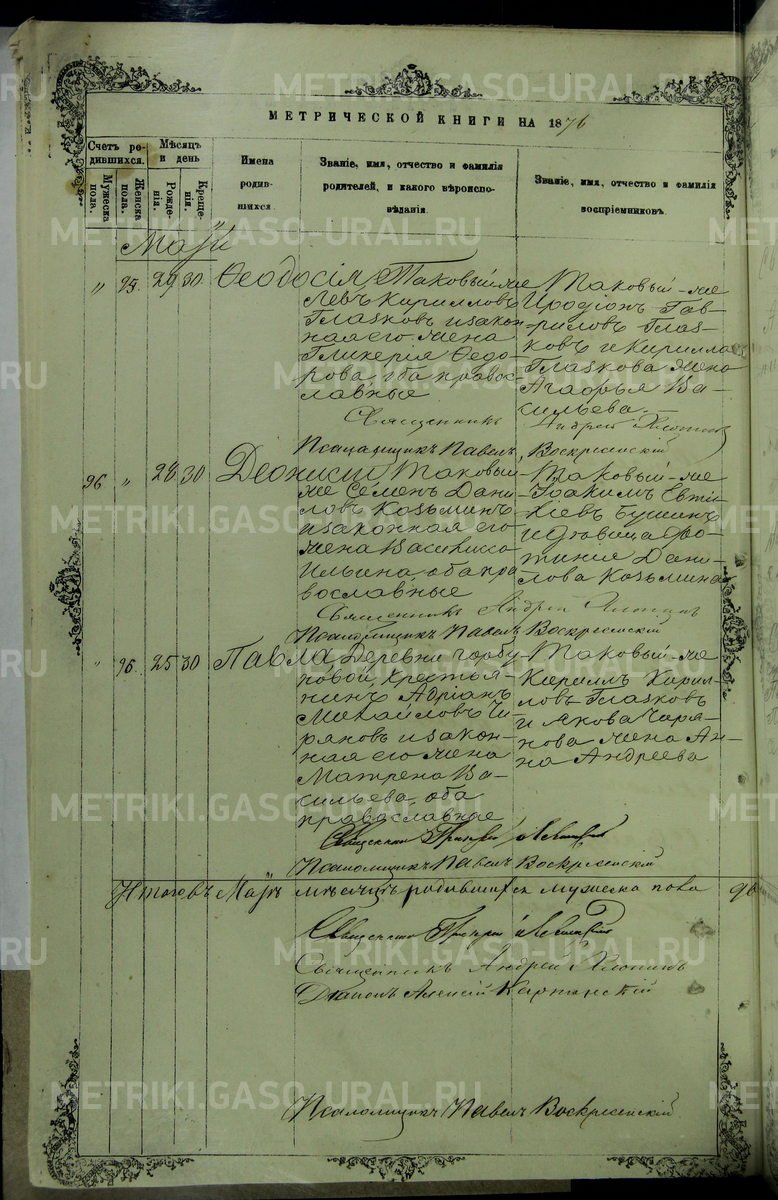 МЕТРИЧЕСКОЙ КНИГИ НА 1876
Счетъ родившихся.
Мужеска пола.
Женска пола.
Мѣсяцъ и день
Рожденія.
Крещенія.
Имена родившихся.
Званіе, имя, отчество и фамилія
родителей, и какого вѣроиспо-
вѣданія.
Званіе, имя, отчество и фамилія
воспріемниковъ.
Май
" 95. 29 30 Ѳеодосія
Таковый-же
Левъ Кирилловъ
Глазковъ и закон
ная его жена
Гликерія Ѳедо-
рова, оба правос
лавные
Таковый-же
Иродіонъ Гав-
риловъ Глаз-
ковъ и Кирилла
Глазкова жена
Агафья Ва-
сильева.
Священникъ Андрей
Псаломщикъ Павелъ Воскресенскій
96 " 28 30 Деонисій
Таковый
же Семенъ Дани
ловъ Козьминъ
и законная его
жена Васисисса
Ильина, оба пра
вославные
Таковый-же
Іоакимъ Евти-
хіевъ Бушинъ
и дѣвица Фо-
тинія Дани-
лова Козьмина
Священникъ Андрей
Псаломщикъ Павелъ Воскресенскій
" 96. 25 30 Павла
Деревни Горбу-
новой, Крестья-
нинъ Адріанъ
Михайловъ Чи-
ряновъ и закон-
ная его жена
Матрена Ва-
сильева, оба
православные
Таковый-же
Кириллъ Кирил-
ловъ Глазковъ
и Якова Чиря-
нова жена Ан-
на Андреева
Священникъ
Псаломщикъ Павелъ Воскресенскій
Итого въ Маѣ мѣсяцѣ родившихся мужеска пола 96
Священникъ
Священникъ Андрей
Діаконъ Алексій
Псаломщикъ Павелъ Воскресенскій
METRIKI.GASO-URAL.RU